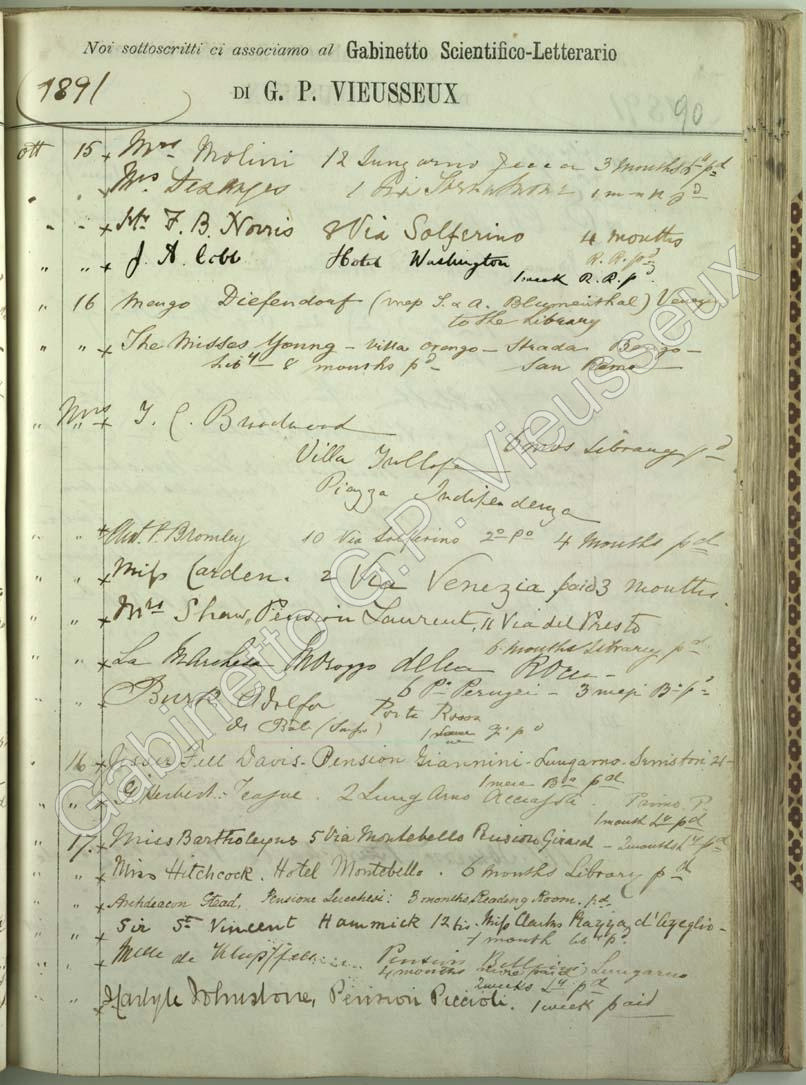 Noi sottoscritti ci associamo al Gabinetto Scientifico-Letterario
1891
DI G. P. VIEUSSEUX
90
ott 15 x Mrs Molini 12 Lungarno 3 months Ly pd
" " x Mrs 1 Via 1 pd
" " x Mr F. B. Norris 8 Via Solferino 4 months
R. R. pd
" " x J. A. Cobb Hotel Washington
1 week R. R. p
" 16 Diefendorf (mep S. & A. Blumenthal)
to the Library
" " x The Misses Young - Villa - Strada -
Liby - 8 months pd - San Remo
" " x Mrs T. C. Broadwood
6 mos Library pd
Villa
Piazza Indipendenza
" " x P. Bromley 10 Via Solferino 2o Po 4 Months pd
" " x Miss Carden. 2 Via Venezia paid 3 months.
" " x Mrs Shaw, Pension Laurent, 11 Via del Presto
6 months Library pd
" " x La Marchesa Morozzo della Rocca -
" " x Adolfo 6 - 3 mesi
de Bal Porta Rossa
1 pd
16 x Fell Davis - Pension Giannini - Lungarno
1 mese pd
" x Herbert Teague. 2 Lung'Arno Acciajoli. Primo P.
1 month Ly pd
17. x Miss Bartholeyns 5 Via Montebello Pension Girard - 2 months Ly pd
" " x Miss Hitchcock. Hotel Montebello. 6 months Library pd
" " x Archdeacon Stead, Pensione Lucchesi: 3 months, Reading Room. pd
" " x Sir St Vincent Hammick 12 bis. Miss Clarks Piazza d'Azeglio -
1 month Liby pd.
" " x Mlle de Pension Bellini Lungarno
4 months
2 weeks Ly pd
" " x Johnstone, Pension Piccioli. 1 week paid
Gabinetto G.P. Vieusseux